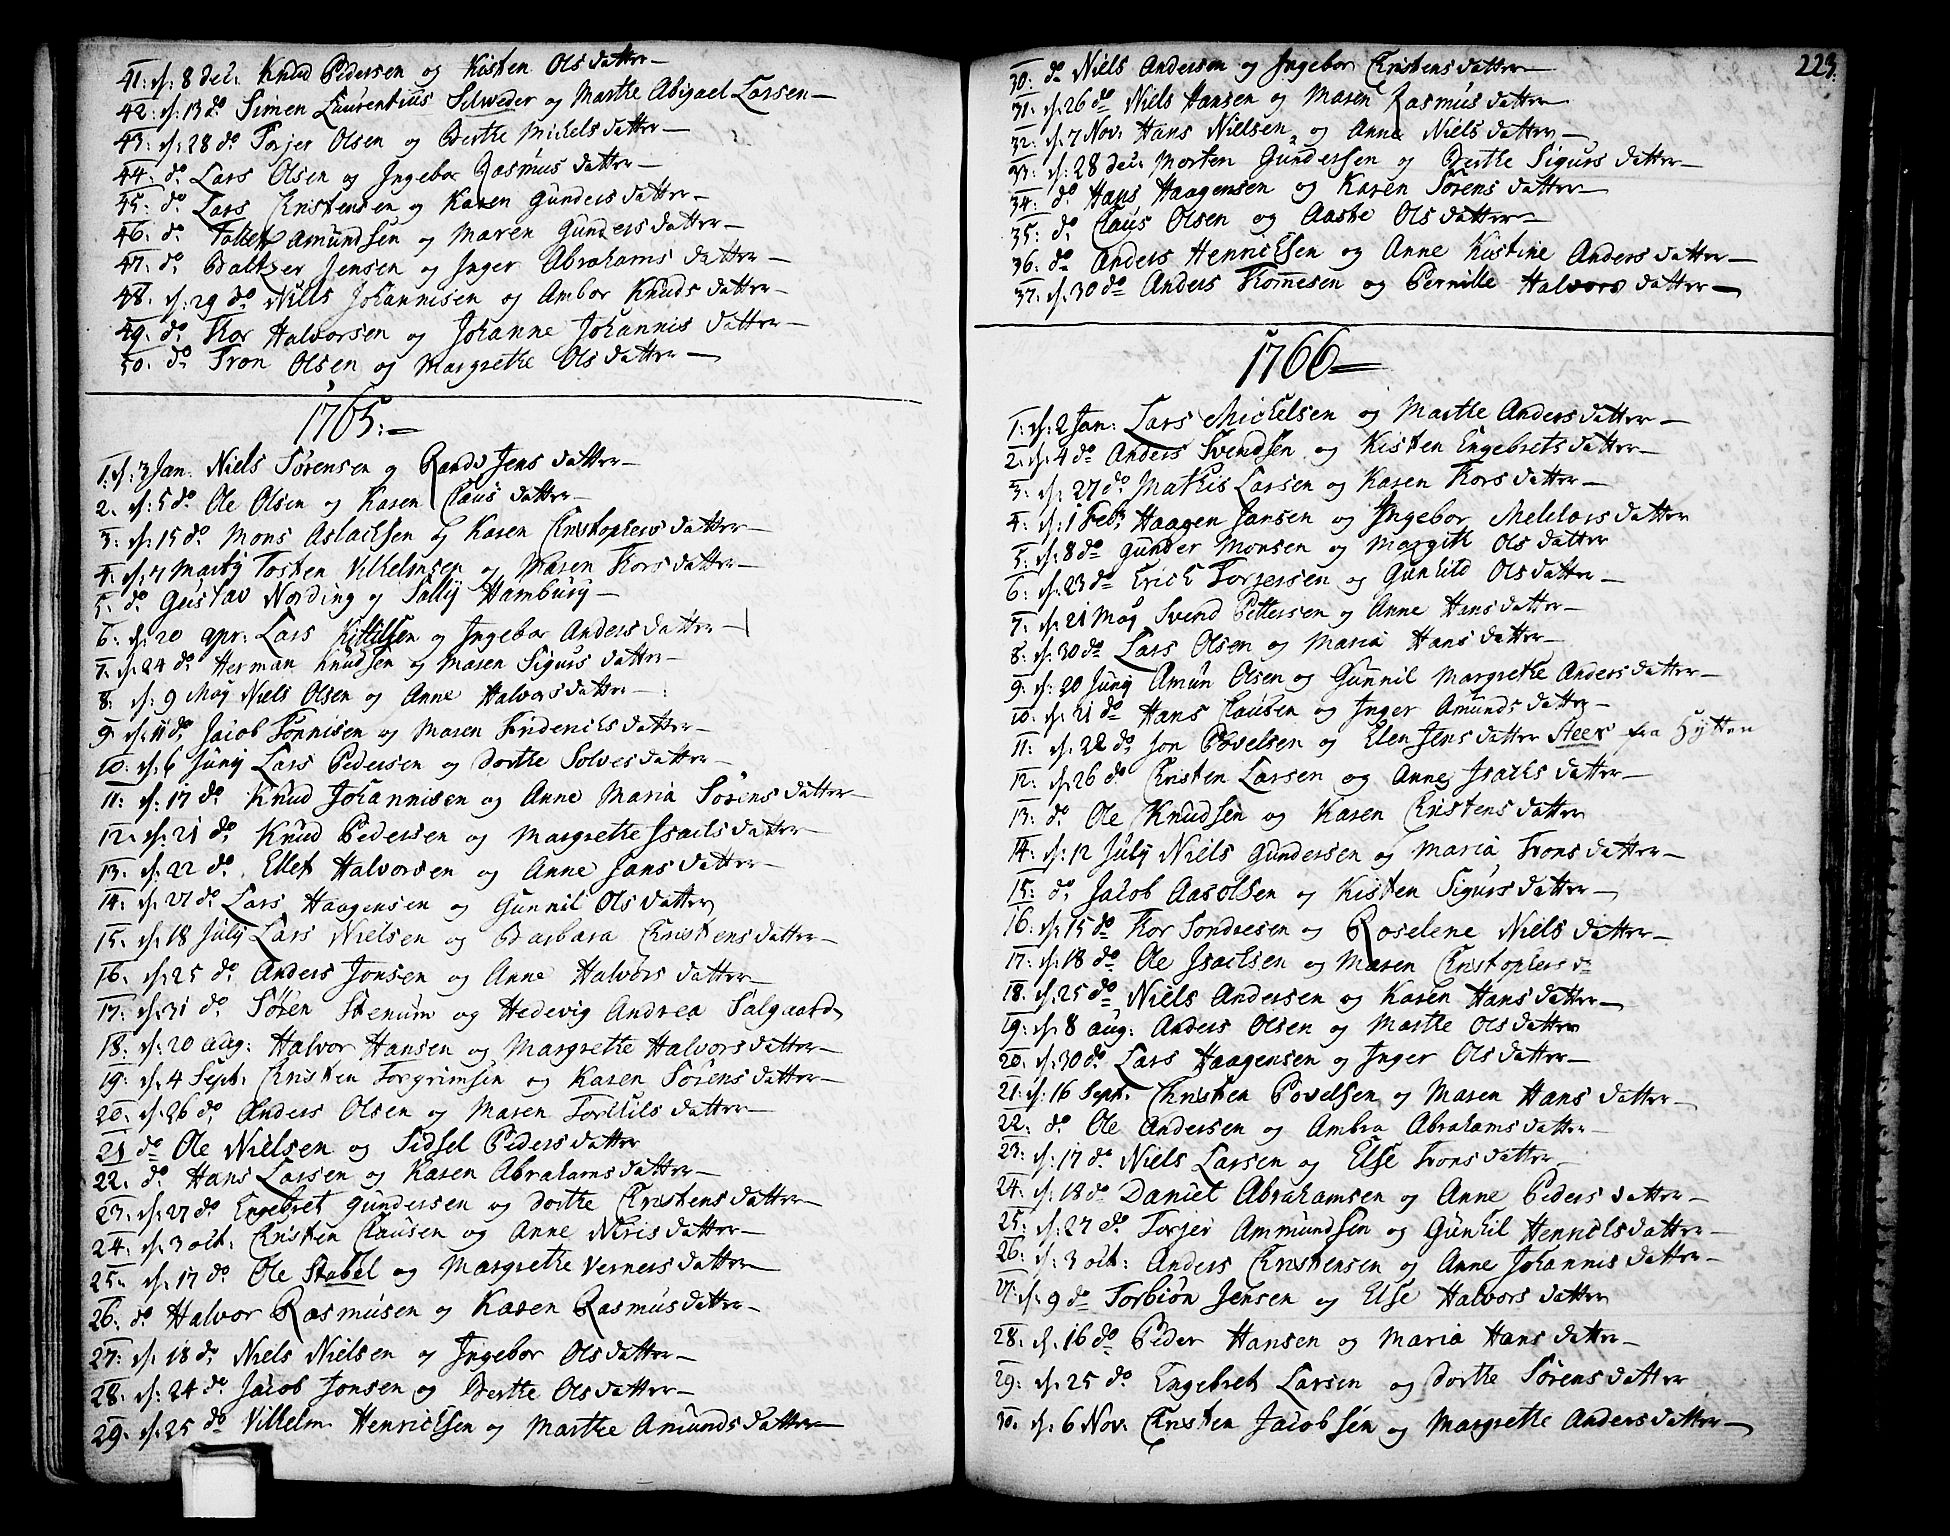 41: d: 8 dec: Knud Pedersen og Kisten Olsdatter
42: d: 13 do Simen Laurentius Silweder og Marthe Abigael Larsen
43: d: 28 do Torjer Olsen og Berthe Michelsdatter
44: do Lars Olsen og Ingebor Rasmusdatter
45: do Lars Christensen og Karen Gundersdatter
46: do Amundsen og Maren Gundersdatter
47: do Baltzer Jensen og Inger Abrahamsdatter
48: d: 29 do Niels Johannisen og Ambor Knudsdatter
49: do Thor Halvorsen og Johanne Johannisdatter
50: do Tron Olsen og Margrethe Olsdatter
1765:
1: d: 3 Jan. Niels Sørensen og Randi Jensdatter
2. d: 5 do Ole Olsen og Karen Clausdatter
3: d: 15 do Mons Aslachsen og Karen Christophersdatter
4: d: 4 Martij Tosten Vilhelmsen og Maren Thorsdatter
5: do Gustav Nording og Sally Hamburg
6: d: 20 apr: Lars Kittilsen og Ingebor Andersdatter
7: d: 24 do Herman Knudsen og Maren Sigursdatter
8: d: 9 Maij Niels Olsen og Anne Halvorsdatter
9 d: 11 do Jacob Tønnisen og Maren Friderichsdatter
10: d: 6 Junij Lars Pedersen og Dorthe Solvesdatter
11: d: 17 do Knud Johannisen og Anne Maria Sørensdatter
12: d: 21 do Knud Pedersen og Margrethe Isachsdatter
13: d: 22 do Ellef Halvorsen og Anne Jansdatter
14: d: 27 do Lars Haagensen og Gunnil Olsdatter
15: d: 18 Julij Lars Nielsen og Barbara Christensdatter
16: d: 25 do Anders Jonsen og Anne Halvorsdatter
17: d: 31 do Søren Stenum og Hedevig Andrea Salgaard
18: d: 20 aug: Halvor Hansen og Margrethe Halvorsdatter
19: d: 4 Sept: Christen Torgrimsen og Karen Sørensdatter
20: d: 26 do Anders Olsen og Maren Torkilsdatter
21 do Ole Nielsen og Sidsel Pedersdatter
22. do Hans Larsen og Karen Abrahamsdatter
23: d: 27 do Engebret Gundersen og Dorthe Christensdatter
24: d: 3 oct: Christen Clausen og Anne Nirisdatter
25: d: 17 do Ole Stabel og Margrethe Vernersdatter
26: do Halvor Rasmusen og Karen Rasmusdatter
27: d: 18 do Niels Nielsen og Ingebor Olsdatter
28: d: 24 do Jacob Jonsen og Berthe Olsdatter
29: d: 25 do Vilhelm Henrichsen og Marthe Amundsdatter
223.
30: do Niels Andersen og Ingebor Christensdatter
31: d: 26 do Niels Hansen og Maren Rasmusdatter
32: d: 7 Nov: Hans Nielsen og Anne Nielsdatter
33: d: 28 dec: Morten Gundersen og Berthe Sigursdatter
34: do Hans Haagensen og Karen Sørensdatter
35: do Claus Olsen og Aashe Olsdatter
36: do Anders Henrichsen og Anne Kistine Andersdatter
37: d: 30 do Anders Thomesen og Pernille Halvorsdatter
1766
1: d: 2 Jan: Lars Michelsen og Marthe Andersdatter
2: d: 4 do Anders Svendsen og Kisten Engebretsdatter
3: d: 27 do Mathis Larsen og Karen Thorsdatter
4: d: 1 Feb: Haagen Jansen og Ingebor Melchorsdatter
5: d: 8 do Gunder Monsen og Margith Olsdatter
6: d: 23 do Erich Torgersen og Gunhild Olsdatter
7: d: 21 Maij Svend Pettersen og Anne Hansdatter
8: d: 30 do Lars Olsen og Maria Hansdatter
9: d: 20 Junij Amun Olsen og Gunnil Margrethe Andersdatter
10: d: 21 do Hans Clausen og Inger Amundsdatter
11: d: 22 do Jon Povelsen og Elen Jensdatter Steer fra Hytten
12: d: 26 do Christen Larsen og Anne Isachsdatter
13: do Ole Knudsen og Karen Christensdatter
14: d: 12 Julij Niels Gundersen og Maria Tronsdatter
15: do Jacob Aasolsen og Kisten Sigursdatter
16: d: 15 do Thor Sondresen og Roselene Nielsdatter
17: d: 18 do Ole Isachsen og Maren Christophers dr
18. d: 25 do Niels Andersen og Karen Hansdatter
19: d: 8 aug: Anders Olsen og Marthe Olsdatter
20: d: 30 do Lars Haagensen og Inger Olsdatter
21: d: 16 Sept. Christen Povelsen og Maren Hansdatter
22: do Ole Andersen og Ambra Abrahamsdatter
23: d: 17 do Niels Larsen og Else Tronsdatter
24: d: 18 do Daniel Abrahamsen og Anne Pedersdatter
25: d: 27 do Torjer Ammundsen og Gunhil Henrichsdatter
26: d: 3 oct: Anders Christensen og Anne Johannisdatter
27: d: 9 do Torbiøn Jensen og Else Halvorsdatter
28: d: 16 do Peder Hansen og Maria Hansdatter
29: d: 25 do Engebret Larsen og Dorthe Sørensdatter
30. d: 6 Nov. Christen Jacobsen og Margrethe Andersdatter